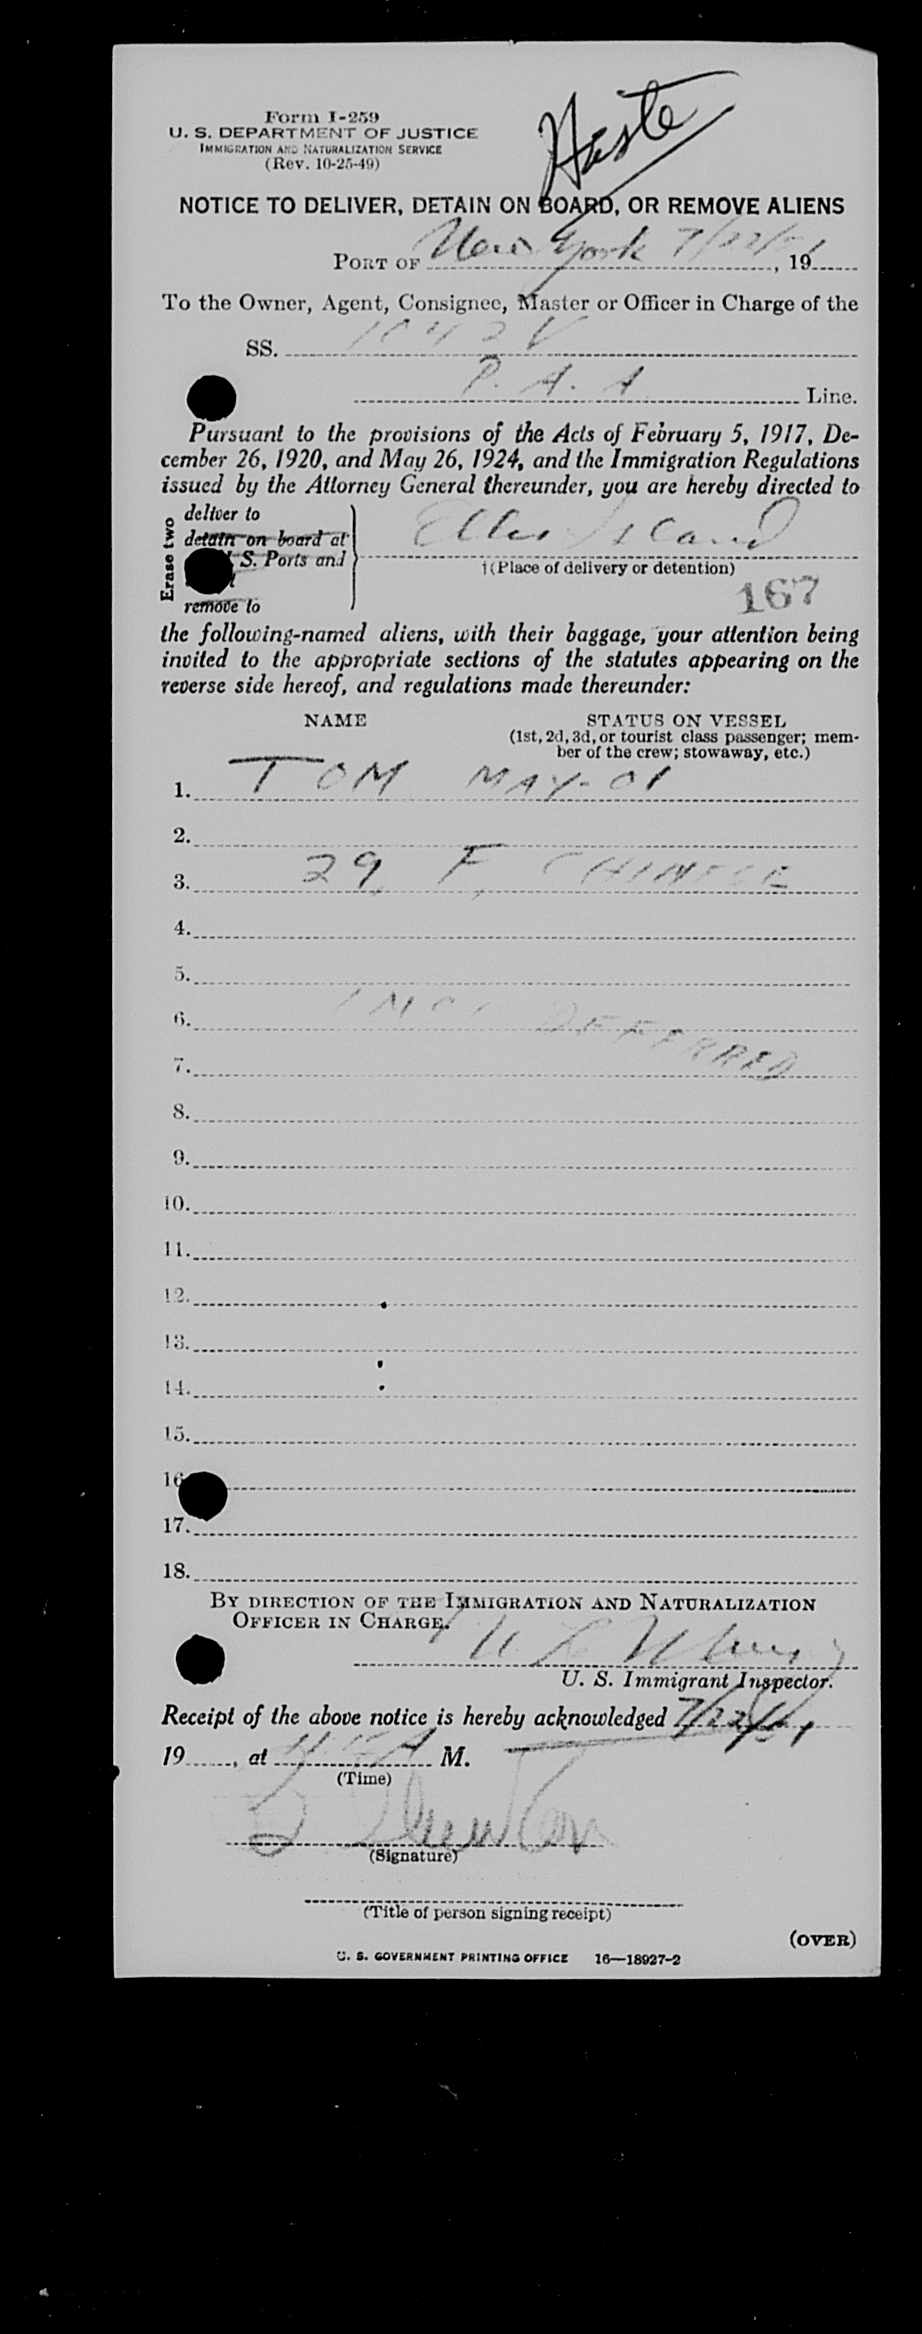 Form I-259
U. S. DEPARTMENT OF JUSTICE
IMMIGRATION AND NATURALIZATION SERVICE
(Rev. 10-25-49)
Haste
NOTICE TO DELIVER, DETAIN ON BOARD, OR REMOVE ALIENS
PORT OF New York 7/22/51, 19
To the Owner, Agent, Consignee, Master or Officer in Charge of the
SS. 1042 V
P. A. A Line.
Pursuant to the provisions of the Acts of February 5, 1917, De-
cember 26, 1920, and May 26, 1924, and the Immigration Regulations
issued by the Attorney General thereunder, you are hereby directed to
Erase two
deliver to
detain on board at
S. Ports and
remove to
Ellis Island
†(Place of delivery or detention)
167
the following-named aliens, with their baggage, your attention being
invited to the appropriate sections of the statutes appearing on the
reverse side hereof, and regulations made thereunder:
NAME STATUS ON VESSEL
(1st, 2d, 3d, or tourist class passenger; mem-
ber of the crew; stowaway, etc.)
1. TOM MAY-
2.
3. 29, F, CHINESE
4.
5.
6. DEFERRED
7.
8.
9.
10.
11.
12.
13.
14.
15.
16
17.
18.
BY DIRECTION OF THE IMMIGRATION AND NATURALIZATION
OFFICER IN CHARGE.
U. S. Immigrant Inspector.
Receipt of the above notice is hereby acknowledged 7/22/51
19, at M.
(Time)
(Signature)
(Title of person signing receipt)
(OVER)
U. S. GOVERNMENT PRINTING OFFICE 16—18927-2